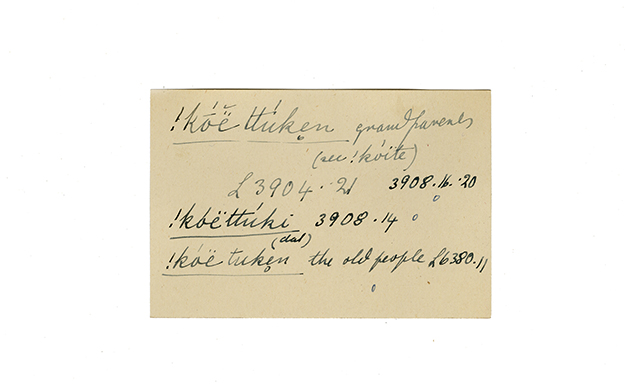 !kóë ttúkẹn grandparents
(see !kóïte)
L 3904·21 3908·16·20
!kóëttúki 3908·14
(dat)
!kóë tukẹn the old people L6380.11